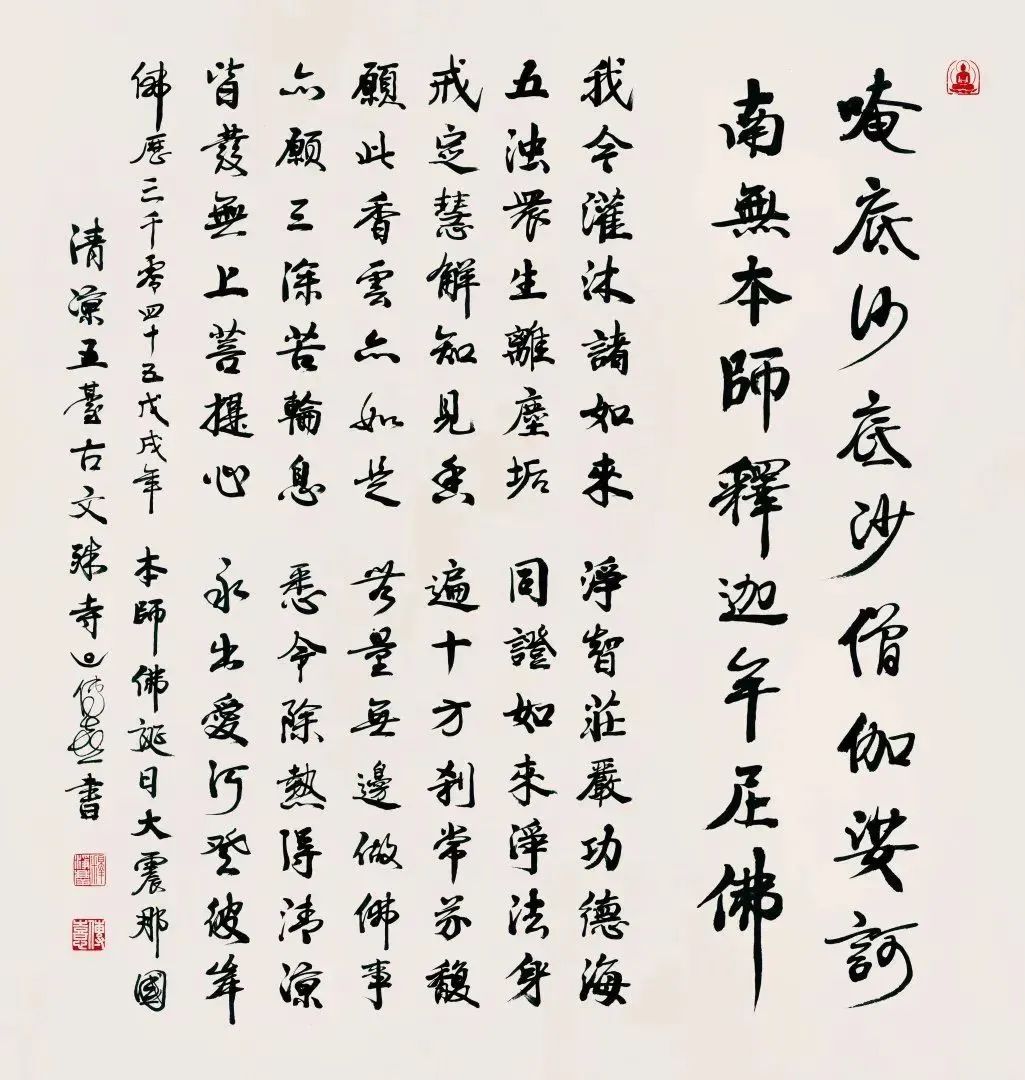 唵底沙底沙僧伽娑訶
南無本師釋迦牟尼佛
我今灌沐諸如來 淨智莊嚴功德海
五浊眾生離塵垢 同證如來淨法身
戒定慧解知見香 遍十方刹常芬馥
願此香雲亦如是 無量無邊做佛事
亦願三涂苦輪息 悉令除熱得清涼
皆發無上菩提心 永出愛河登彼岸
佛曆三千零四十五戊戌年 本師佛誕日大震那國
清涼五臺古文殊寺 傳喜書
傳喜